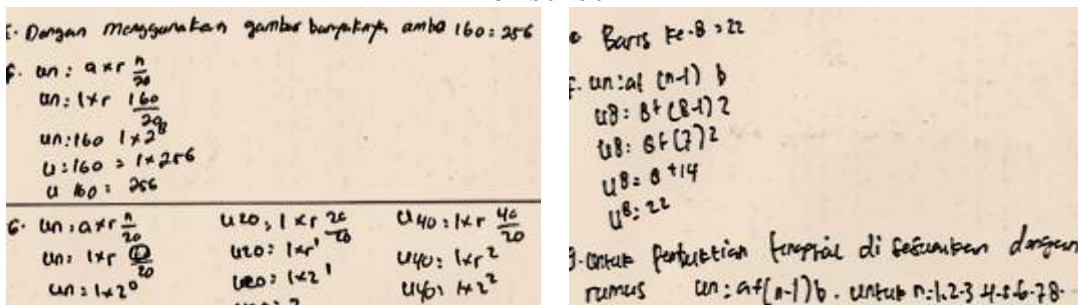 5. Dengan menggunakan gambar banyaknya amba 160 = 256
5. un : a x r n/20
un : 1 x r 160/20
un : 160 1 x 2^8
u : 160 = 1 x 256
u 160 : 256
6. un : a x r n/20
un : 1 x r 0/20
un : 1 x 2^0
u20 : 1 x r 20/20
u20 : 1 x r^1
u20 : 1 x 2^1
u20 : 2
u40 : 1 x r 40/20
u40 : 1 x r^2
u40 : 1 x 2^2
Baris ke-8 = 22
un : a + (n-1) b
u8 : 8 + (8-1) 2
u8 : 8 + (7) 2
u8 = 8 + 14
u8 : 22
untuk di sesuaikan dengan
rumus un : a + (n-1) b. untuk n = 1.2.3 4.5.6.7 8.